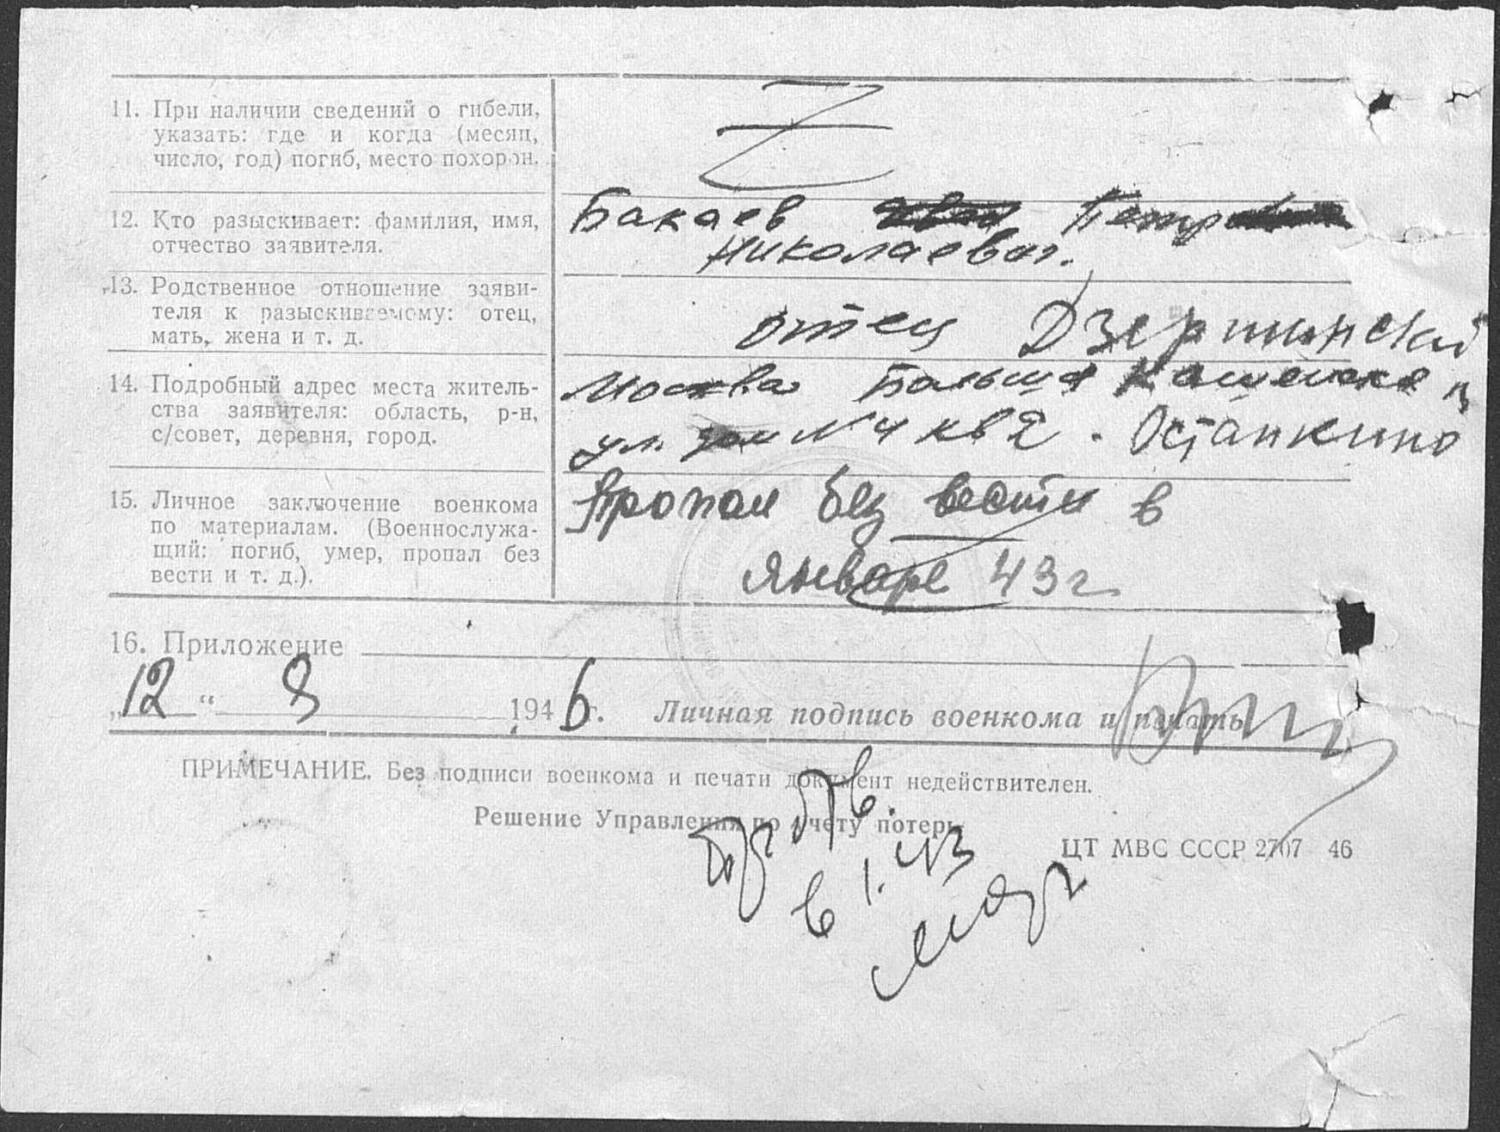 11. При наличии сведений о гибели,
указать: где и когда (месяц,
число, год) погиб, место похорон.
Z
12. Кто разыскивает: фамилия, имя,
отчество заявителя.
Бакаев Петр
Николаевич.
13. Родственное отношение заяви-
теля к разыскиваемому: отец,
мать, жена и т. д.
отец Дзержинский
14. Подробный адрес места житель-
ства заявителя: область, р-н,
с/совет, деревня, город.
Москва Больша
ул. дом № 4 кв 2. Останкино
15. Личное заключение военкома
по материалам. (Военнослужа-
щий: погиб, умер, пропал без
вести и т. д.).
Пропал без вести в
январе 43 г.
16. Приложение
„12“ 8 1946 г. Личная подпись военкома и печать
ПРИМЕЧАНИЕ. Без подписи военкома и печати документ недействителен.
Решение Управления по учету потерь
ЦТ МВС СССР 2707 46
в 1.43